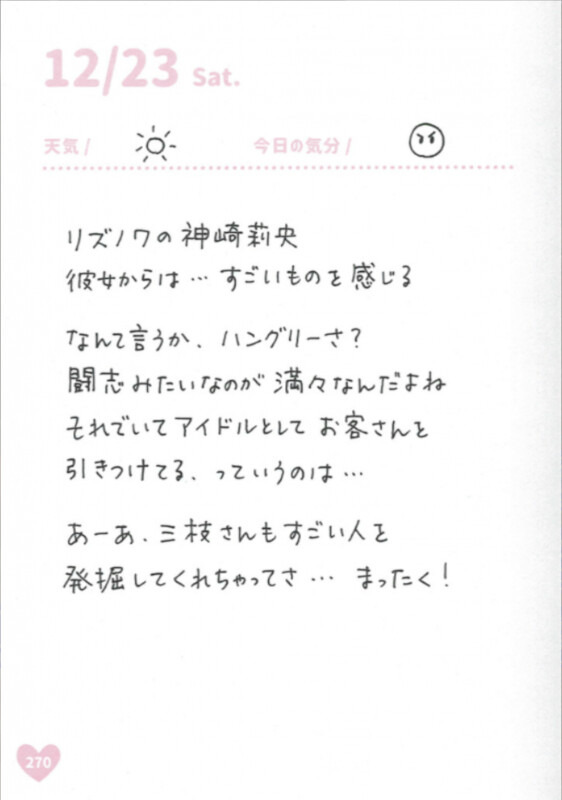 12/23 Sat.
天気 / 今日の気分 /
リズノワの神崎莉央
彼女からは… すごいものを感じる
なんて言うか、ハングリーさ?
闘志みたいなのが満々なんだよね
それでいてアイドルとしてお客さんを
引きつけてる、っていうのは…
あーあ、三枝さんもすごい人を
発掘してくれちゃってさ… まったく!
270